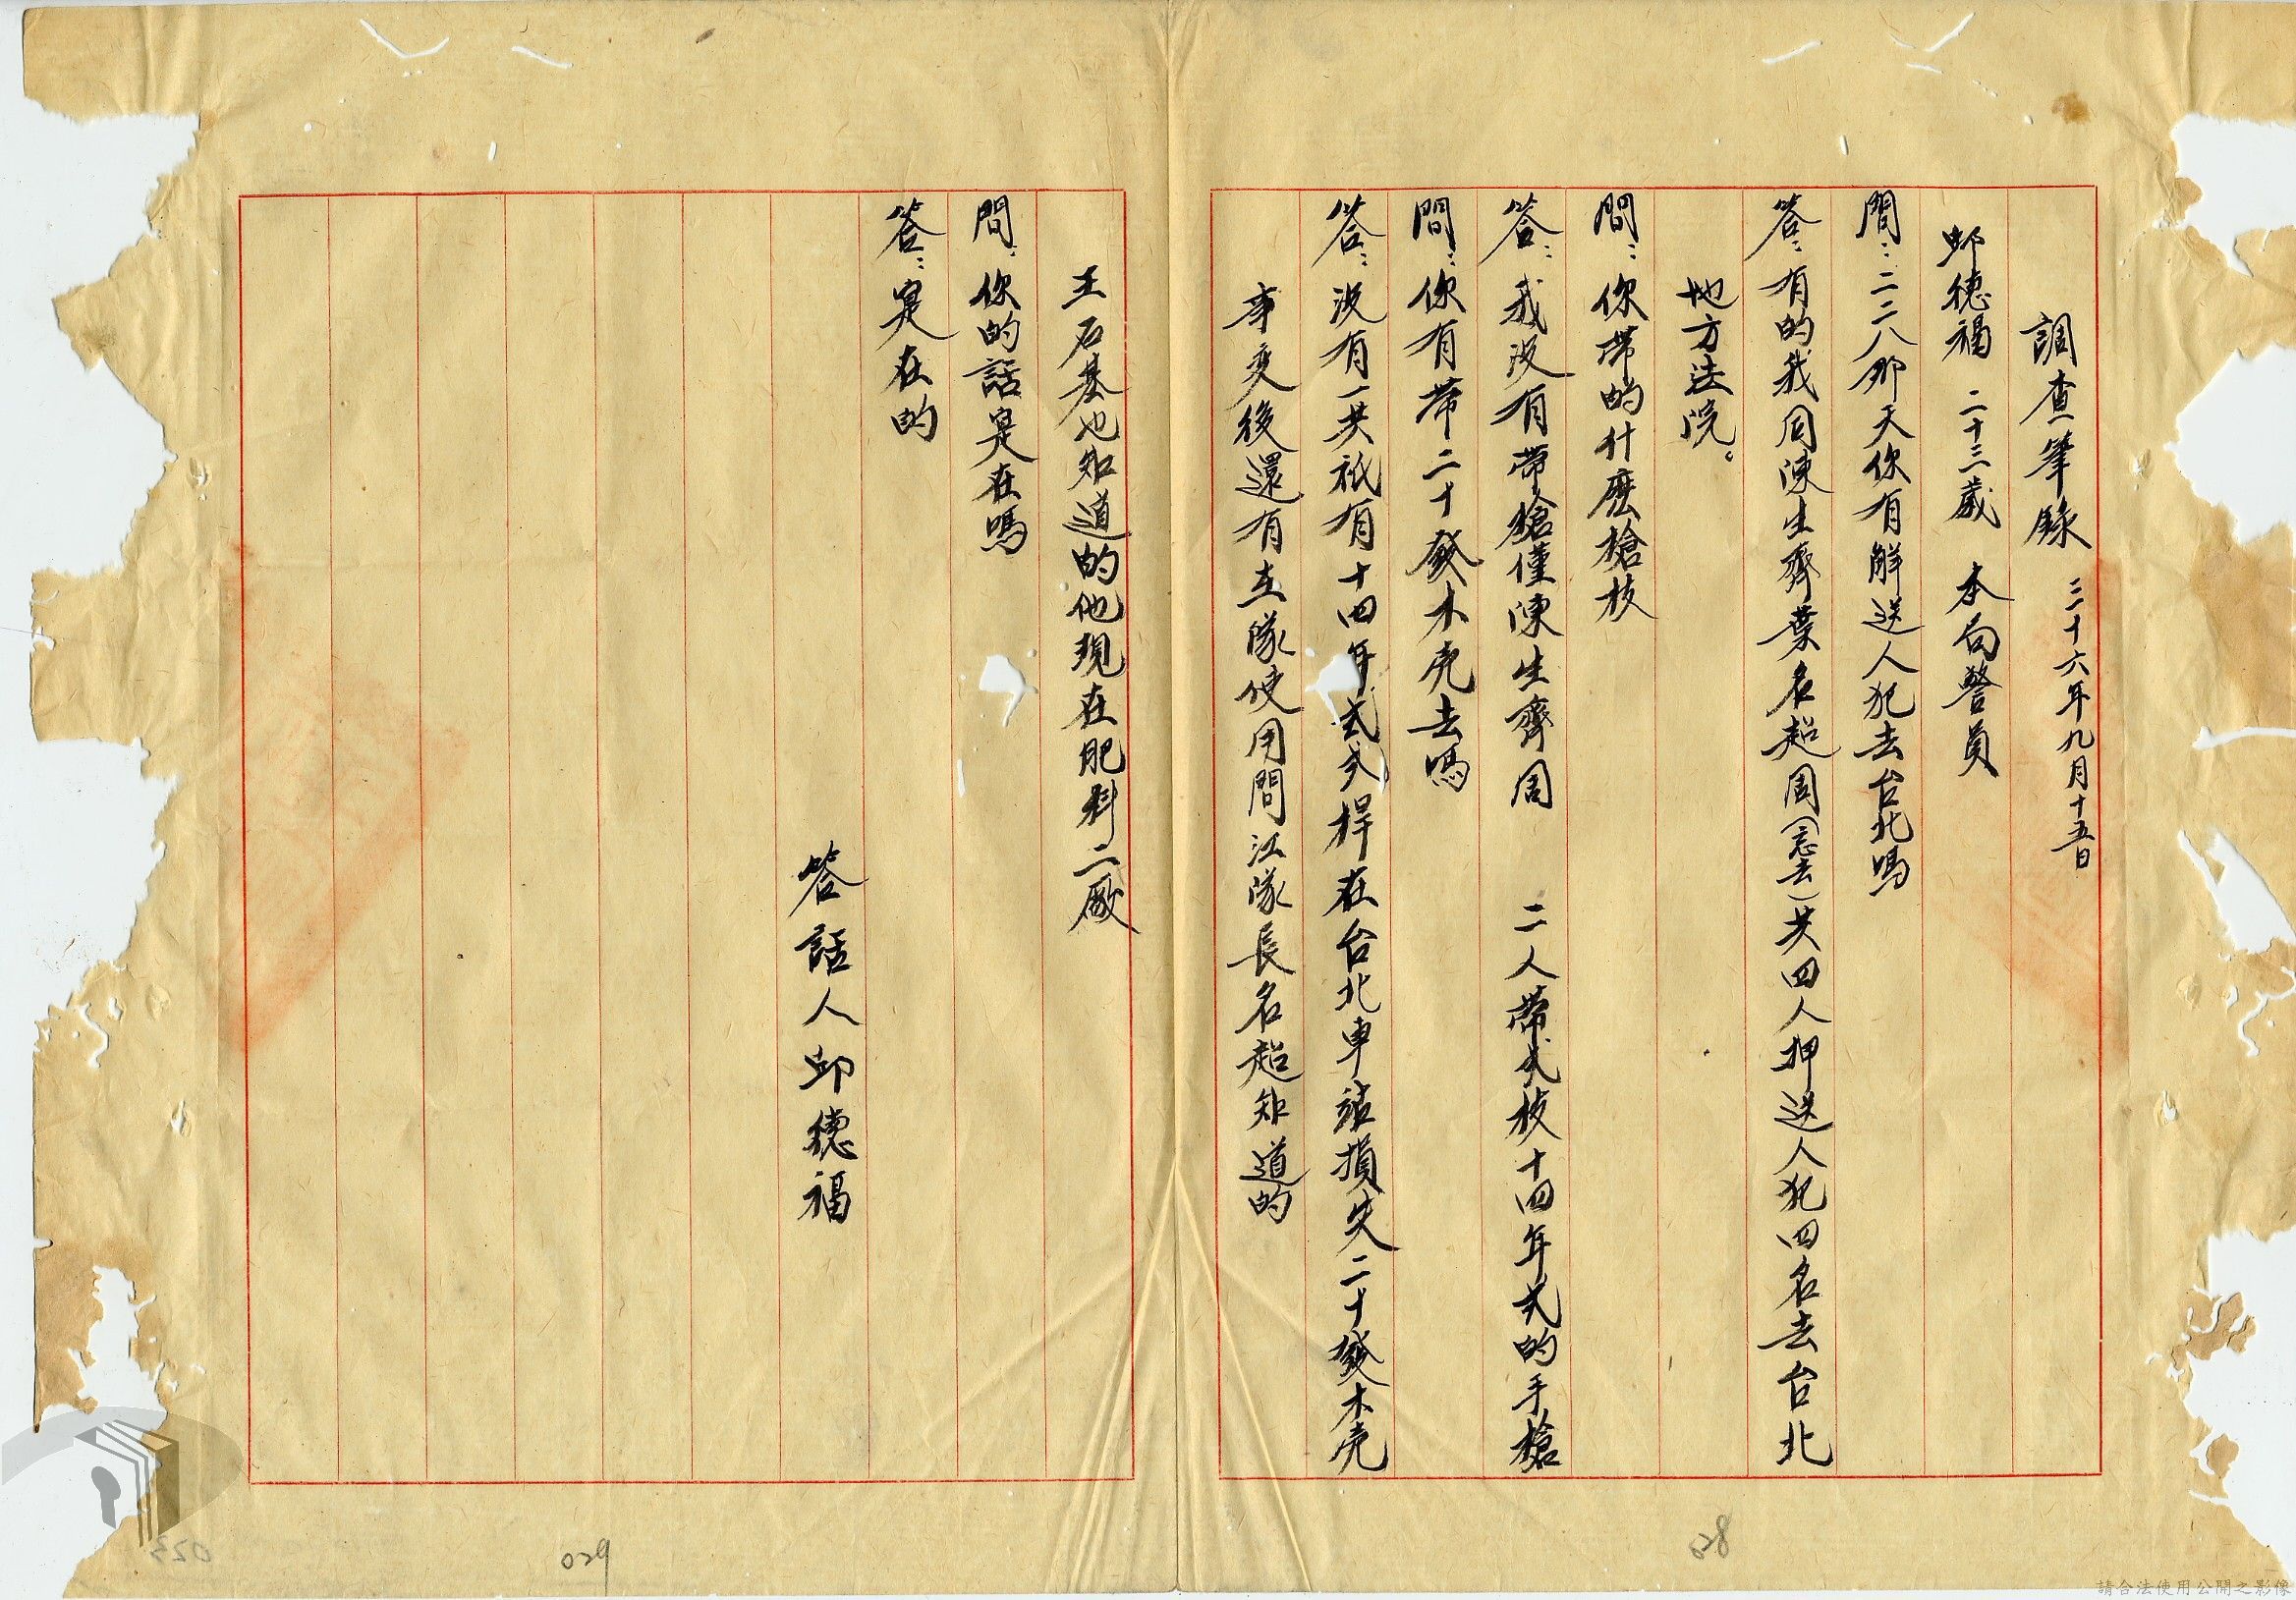 調查筆錄 三十六年九月十五日
邱德福 二十三歲 本局警員
問：二二八那天你有解送人犯去台北嗎
答：有的我同陳生齊葉名超周（忘去）共四人押送人犯四名去台北
地方法院。
問：你帶的什麼槍枝
答：我沒有帶槍僅陳生齊周 二人帶弍枝十四年式的手槍
問：你有帶二十發木壳去嗎
答：沒有一共祇有十四年式弍桿在台北車站損失二十發木壳
事変後還有在隊使用問江隊長名超知道的
王石基也知道的他現在肥料二廠
問：你的話寔在嗎
答：寔在的
答話人邱德福
028
029
023
請合法使用公開之影像